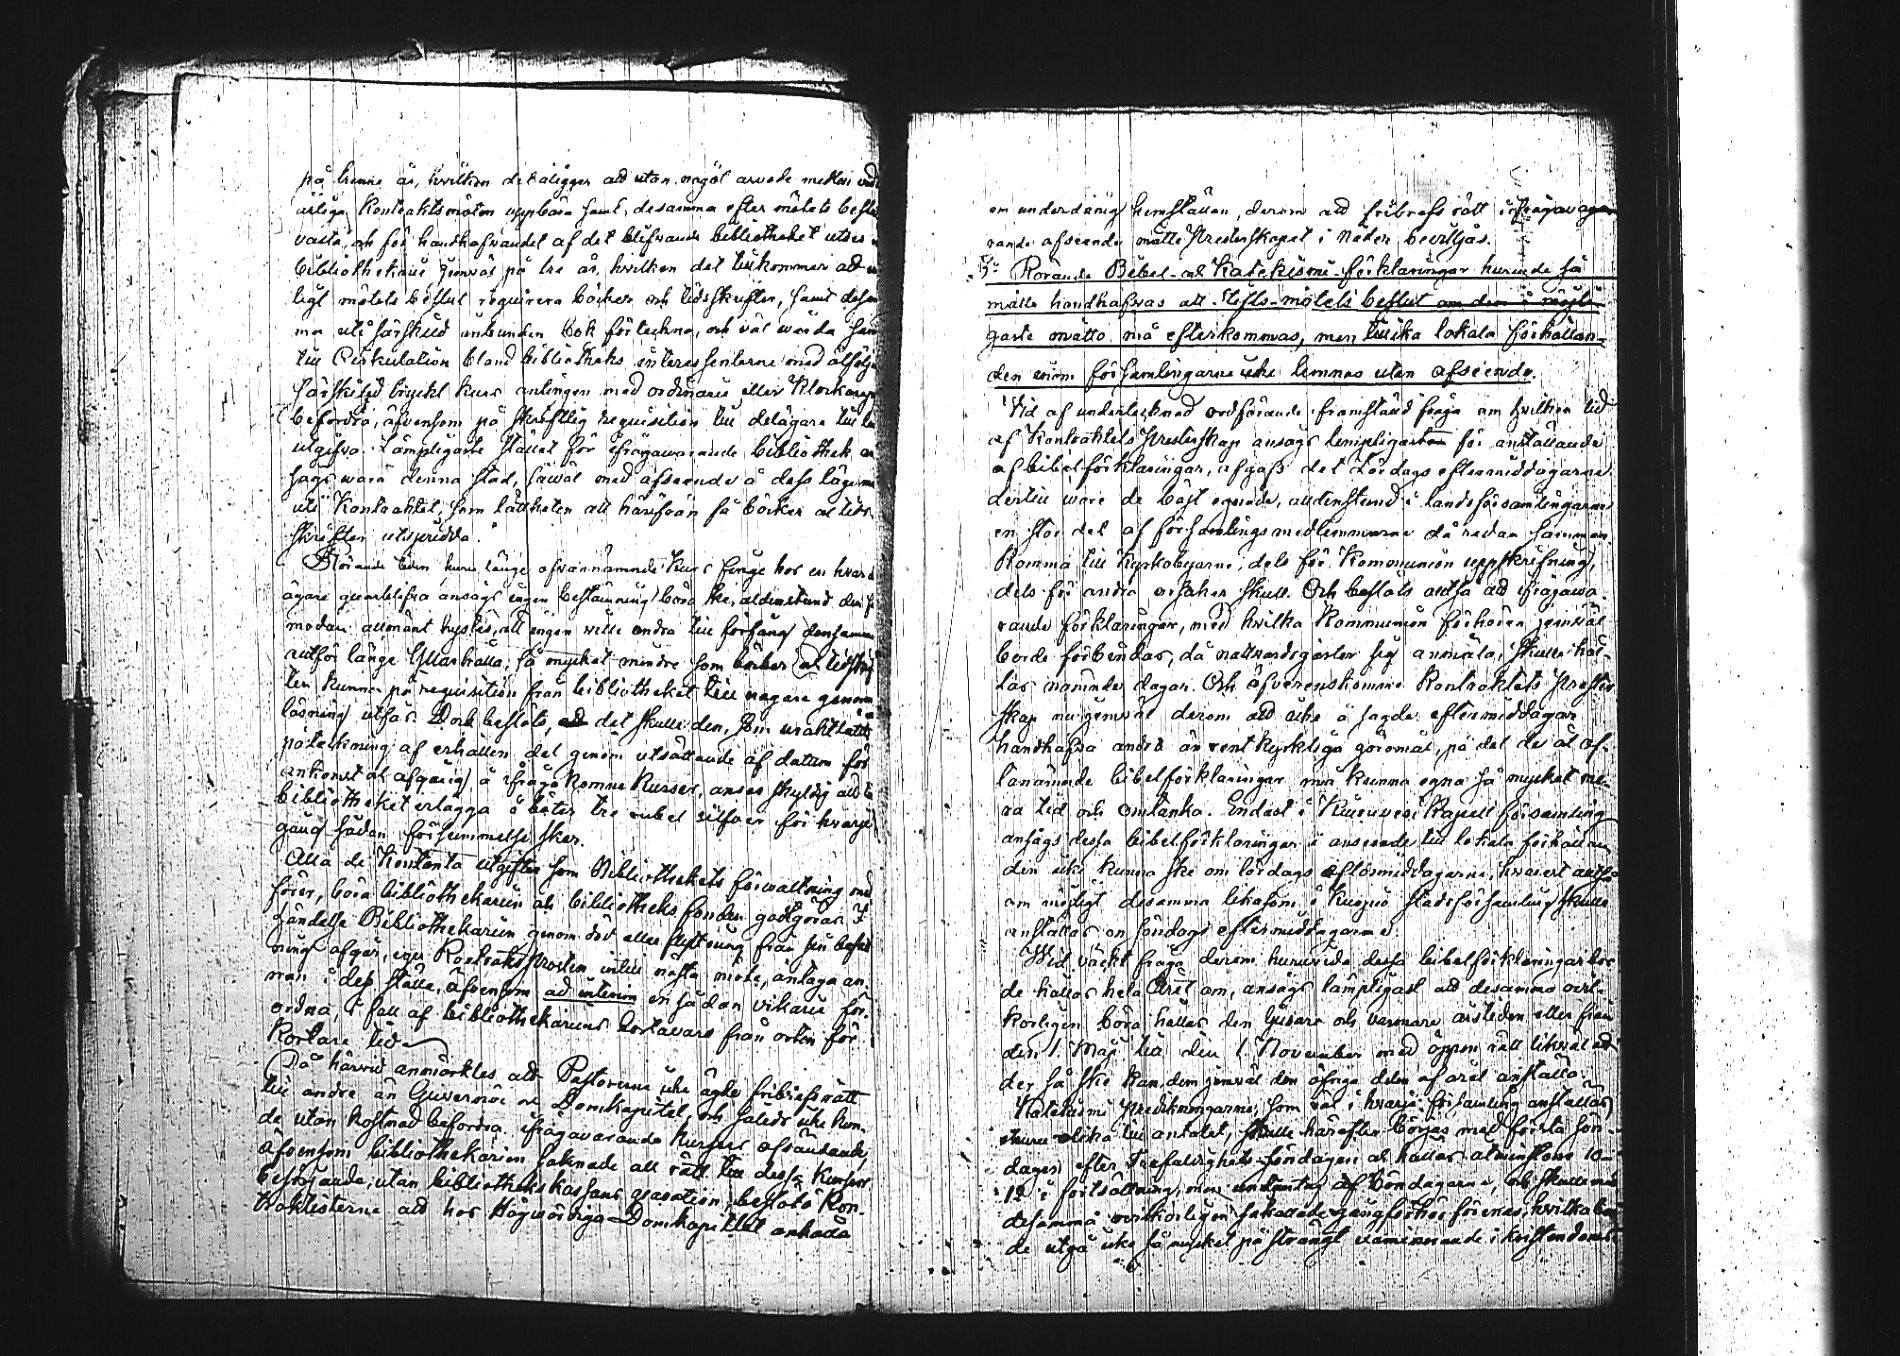 på trenne år, hvilken det åligger att utan något arvode medlen vid
årliga Kontraktsmöten uppbära samt, desamma efter mötets beslut
valta, och för handhafvandet af det blifvande bibliotheket utses en
bibliothekarie jemväl på tre år, hvilken det tillkommer att en
ligt mötets beslut requirera böcker och tidsskrifter, samt desam
ma uti särskild inbunden bok förteckna, och väl wårda samt
till Cirkulation bland bibliotheks interessenterne med åtföljande
särskild tryckt kurs antingen med ordinarie eller Klockarepost
befordra, äfvensom på skriftlig requisition till delägare till lån
utgifva. Lämpligaste stället för ifrågawarande bibliothek an
sags wara denna stad, såwäl med afseende å dess läge midt
uti Kontraktet, som lättheten att härifrån få böcker och tids-
skrifter utspridda.
Rörande tiden, huru länge ofvannämnde Kurs finge hos en hvar del
ägare quarblifva ansågs ingen bestämning böra ske, aldenstund den för
modan allmänt hystes, att ingen ville andra till förfång densamma
allför länge qvarhålla, så mycket mindre som böcker och tidskrif
ter kunna på requisition från bibliotheket till nogare genom
läsning utfås. Dock beslöts, att det skulle den, som uraktlåtit
påteckning af erhållen del genom utsättande af datum för
ankomst och afgång å ifrågakomne Kurser, anses skyldig att till
bibliotheket erlägga å böter tre rubel silfver för hvarje
gång sådan försummelse sker.
Alla de Kontanta utgifter som Bibliothekets förvaltning med
förer, böra bibliothekarien af bibliotheks fonden godtgöras. I
händelse Bibliothekarien genom död eller flyttning från sin befatt
ning afgår, eger Kontrakts Prosten intill nästa möte, antaga an
nan i dess ställe, äfvensom ad interim en sådan vikarie för-
ordna, i fall af bibliothekariens bortavaro från orten för
kortare tid.
Då härvid anmärktes att Pastorerne icke ägde fribrefsrätt
till andre än Guvernör och Domkapitel, och således icke kun-
de utan kostnad befordra ifrågavarande kurser, afsändande,
äfvensom bibliothekarien saknade all rätt till dessa kursers
befrijande, utan bibliotheks kassans gravation, beslöto Kon-
traktisterne att hos Högwördiga Domkapitlet anhålla
om underdånig hemställan, derom att fribrefs rätt i ifrågavaga
rande afseende måtte Presterskapet i Nåder beviljas.
5:o Rörande Bibel- och Katekismi-förklaringar huru de så
måtte handhafvas att Stifts-mötets beslut om den i möjli-
gaste måtto må efterkommas, men tillika lokala förhållan-
den inom församlingarne icke lemnas utan afseende.
Vid af undertecknad ordförande framställd fråga om hvilken tid
af Kontraktets Presterskap ansågs lempligast för anställande
af bibelförklaringar, afgafs det Lördags eftermiddagarne
dertill wore de bäst egnade, aldenstund i landsförsamlingarne
en stor del af församlingsmedlemmarne då redan samman
komma till Kyrkobyarne, dels för Kommunion uppskrifning,
dels för andra orsaker skull. Och beslöts altså att ifrågawa
rande förklaringar, med hvilka Kommunion förhören jemväl
borde förbindas, då nattvardsgäster sig anmäla, skulle hål-
las nämnde dagar. Och öfverenskomme Kontraktets Prester
skap nu jemväl derom att icke å sagde eftermiddagar
handhafva andra än rent Kyrkliga göromål, på det de åt of-
vannämnde bibelförklaringar må kunna egna så mycket me-
ra tid och omtanka. Endast i Kiuruvesi Kapell församling
ansågs dessa bibelförklaringar i anseende till lokala förhållan
den icke kunna ske om lördags eftermiddagarne, hvarest altså
om möjligt desamma likasom i Kuopio stadsförsamling skulle
anställas om söndags eftermiddagarne.
Wid väckt fråga derom huruvida dessa bibelförklaringar bor
de hållas hela Året om, ansågs lämpligast att desamma ovil-
korligen böra hållas den ljusare och varmare årstiden eller från
den 1 Maj till den 1 November med öppen rätt likväl att
der så ske kan, dem jemväl den öfriga delen af året anställa.
Katekismi Predikningarne, som väl i hvarje församling anställas
ehuru olika till antalet, skulle härefter börjas med första Sön-
dagen efter Trefaldighets-söndagen och hållas åtminstone 10-
12 i fortsättning, men undantag af Böndagarne, och skulle med
desamma ovillkorligen såkallade gångförhör förenas, hvilka bor
de utgå icke så mycket på strängt examinerande i kristendoms